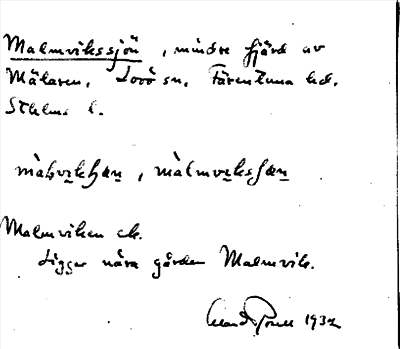 Malmvikssjön, mindre fjärd av
Mälaren, Lovö sn, Färentuna hd.
Sthlms l.
màlmvikʃæn
Malmviken ek.
Ligger nära gården Malmvik.
1932